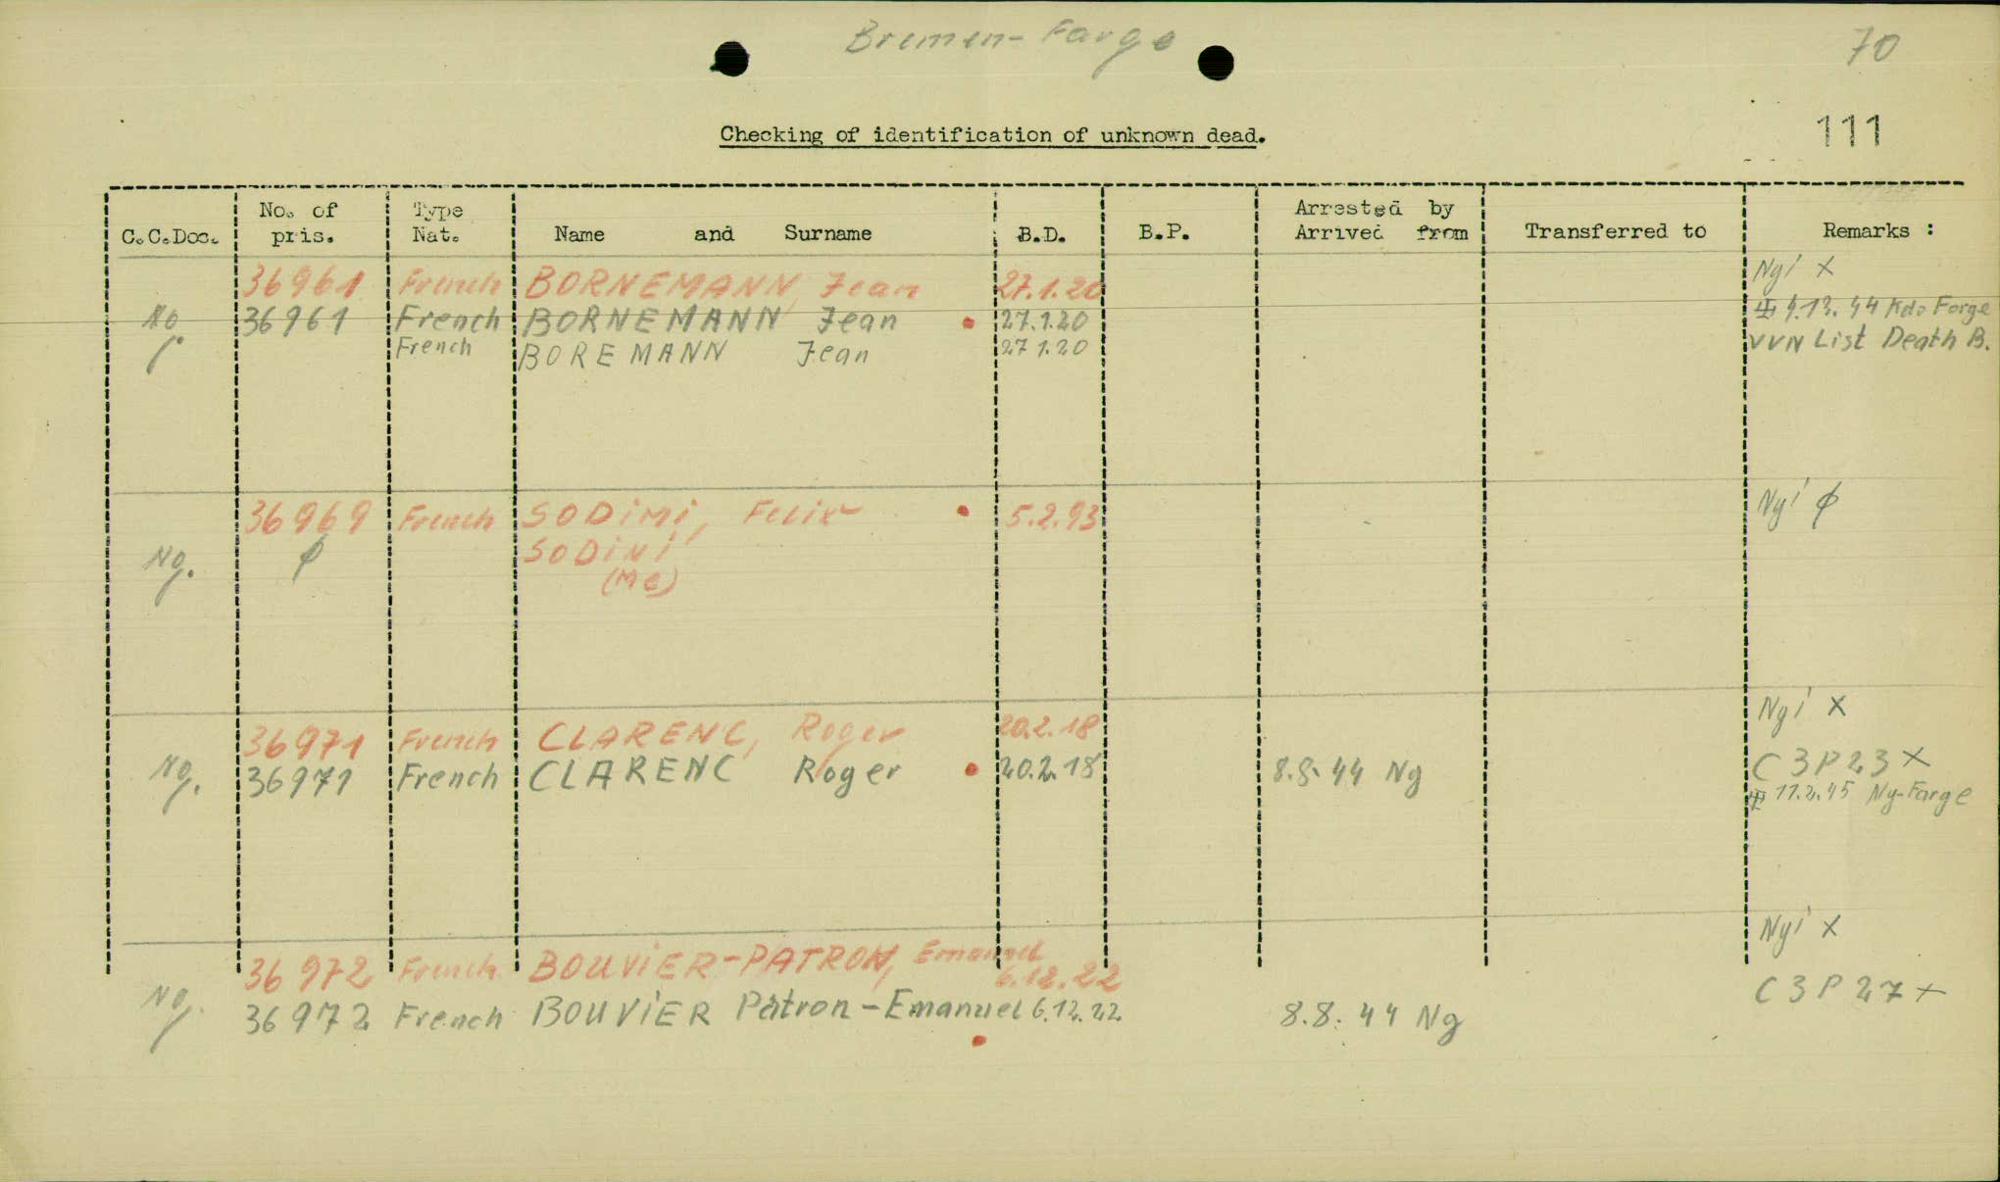 Bremen-Farge
70
111
Checking of identification of unknown dead.
C.C.Doc. No. of pris. Type Nat. Name and Surname B.D. B.P. Arrested by Arrived from Transferred to Remarks :
36961 French BORNEMANN, Jean 27.1.20 Ngi X
Ng 36961 French BORNEMANN Jean 27.1.20 9.12.44 Kdo Farge
French BOREMANN Jean 27 1.20 VVN List Death B.
36969 French SODiMi, Felix 5.2.93 Ngi ϕ
Ng. ϕ SODiNi
(Me)
36971 French CLARENC, Roger 20.2.18 Ngi X
Ng. 36971 French CLARENC Roger 20.2.18 8.8.44 Ng C3P23 X
11.2.45 Ng-Farge
36972 French BOUViER-PATRON, Emanuel 6.12.22 Ngi X
Ng. 36972 French BOUViER Patron-Emanuel 6.12.22 8.8.44 Ng C3P27 X